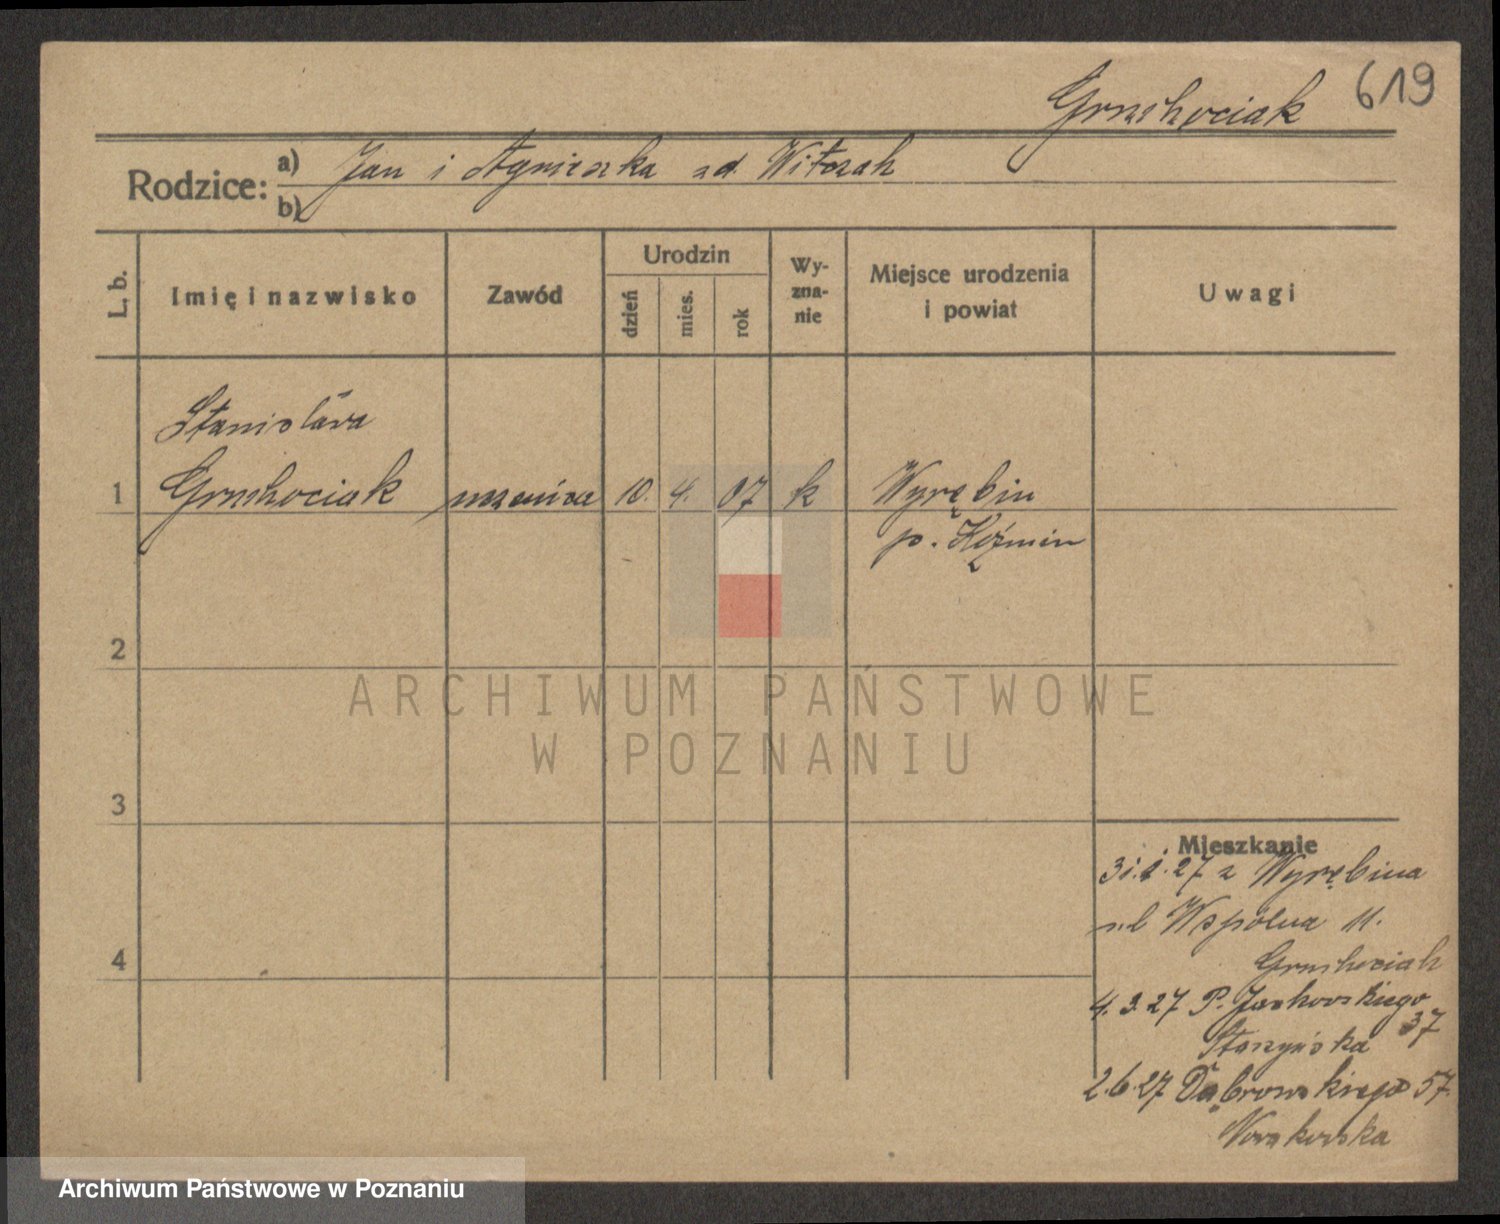 619
Rodzice: a) Jan i Agnieszka z d. Witczak
b)
L. b.
Imię i nazwisko
Zawód
Urodzin
dzień
mies.
rok
Wy-
zna-
nie
Miejsce urodzenia
i powiat
Uwagi
Stanisława
1 10. 4. 07 k Wyrębin
p. Koźmin
2
ARCHIWUM PAŃSTWOWE
W POZNANIU
3
Mieszkanie
31.1.27 z Wyrębina
ul Wspólna 11.
4
4.3.27 P. Jackowskiego 37
2.6.27 Dąbrowskiego 57.
Nowakowska
Archiwum Państwowe w Poznaniu